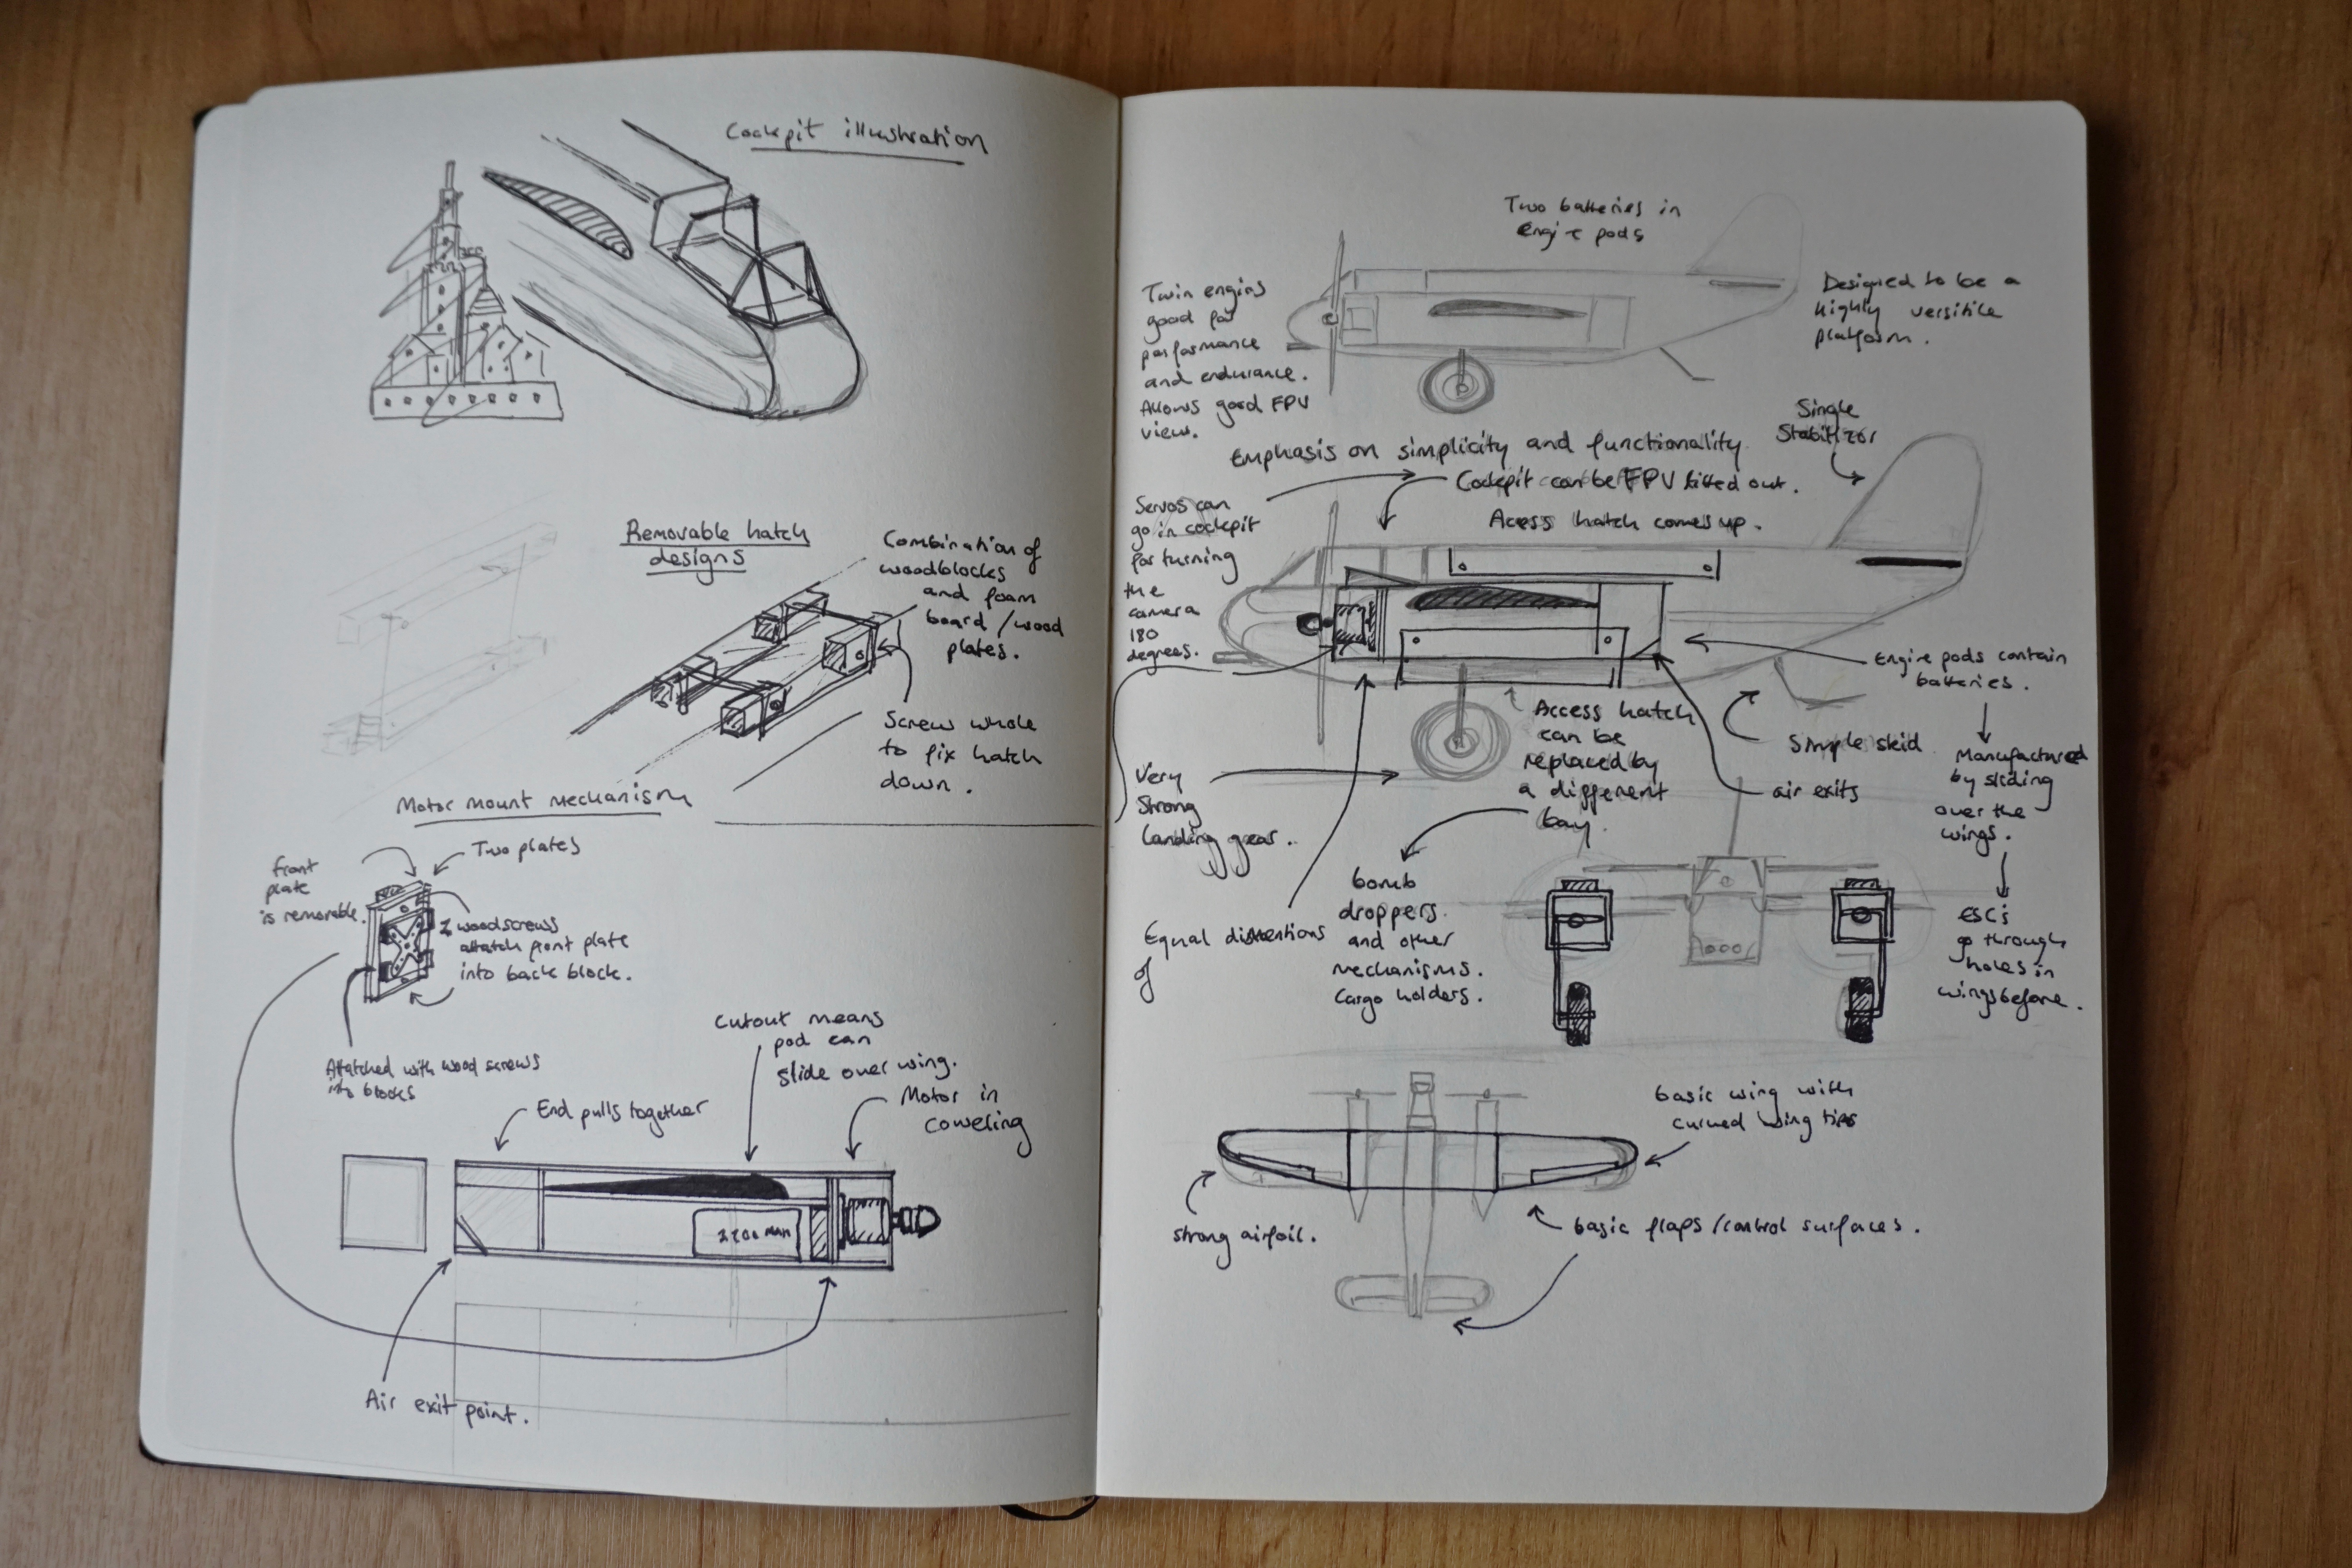 Cockpit illustration
Removable hatch
designs
Combination of
woodblocks
and foam
board / wood
plates.
Screw whole
to fix hatch
down.
Motor mount mechanism
Two plates
front
plate
is removable.
2 woodscrews
attatch front plate
into back block.
Attatched with wood screws
into blocks
Cutout means
pod can
slide over wing.
End pulls together
Motor in
coweling
2200 MAH
Air exit point.
Two batteries in
Engine pods
Twin engins
good for
performance
and endurance.
Allows good FPV
view.
Designed to be a
highly versitile
platform.
Single
Stabilizor
Emphasis on simplicity and functionality.
Cockpit can be FPV fitted out.
Servos can
go in cockpit
for turning
the
camera
180
degrees.
Acess hatch comes up.
Engine pods contain
batteries.
Access hatch
can be
replaced by
a different
bay.
Simple skid
air exits
Manufactured
by sliding
over the
wings.
Very
Strong
Landing gear.
bomb
droppers
and other
mechanisms.
Cargo holders.
Equal
of
ESCs
go through
holes in
wings before.
basic wing with
curved wing tips
strong airfoil.
basic flaps / control surfaces.